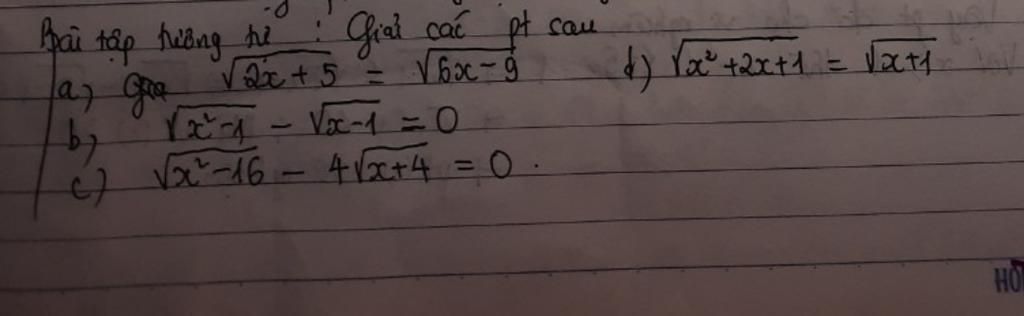 Bài tập tương tự : Giải các pt sau
a) √(2x+5) = √(6x-9) d) √(x²+2x+1) = √(x+1)
b) √(x²-1) - √(x-1) = 0
c) √(x²-16) - 4√(x+4) = 0.